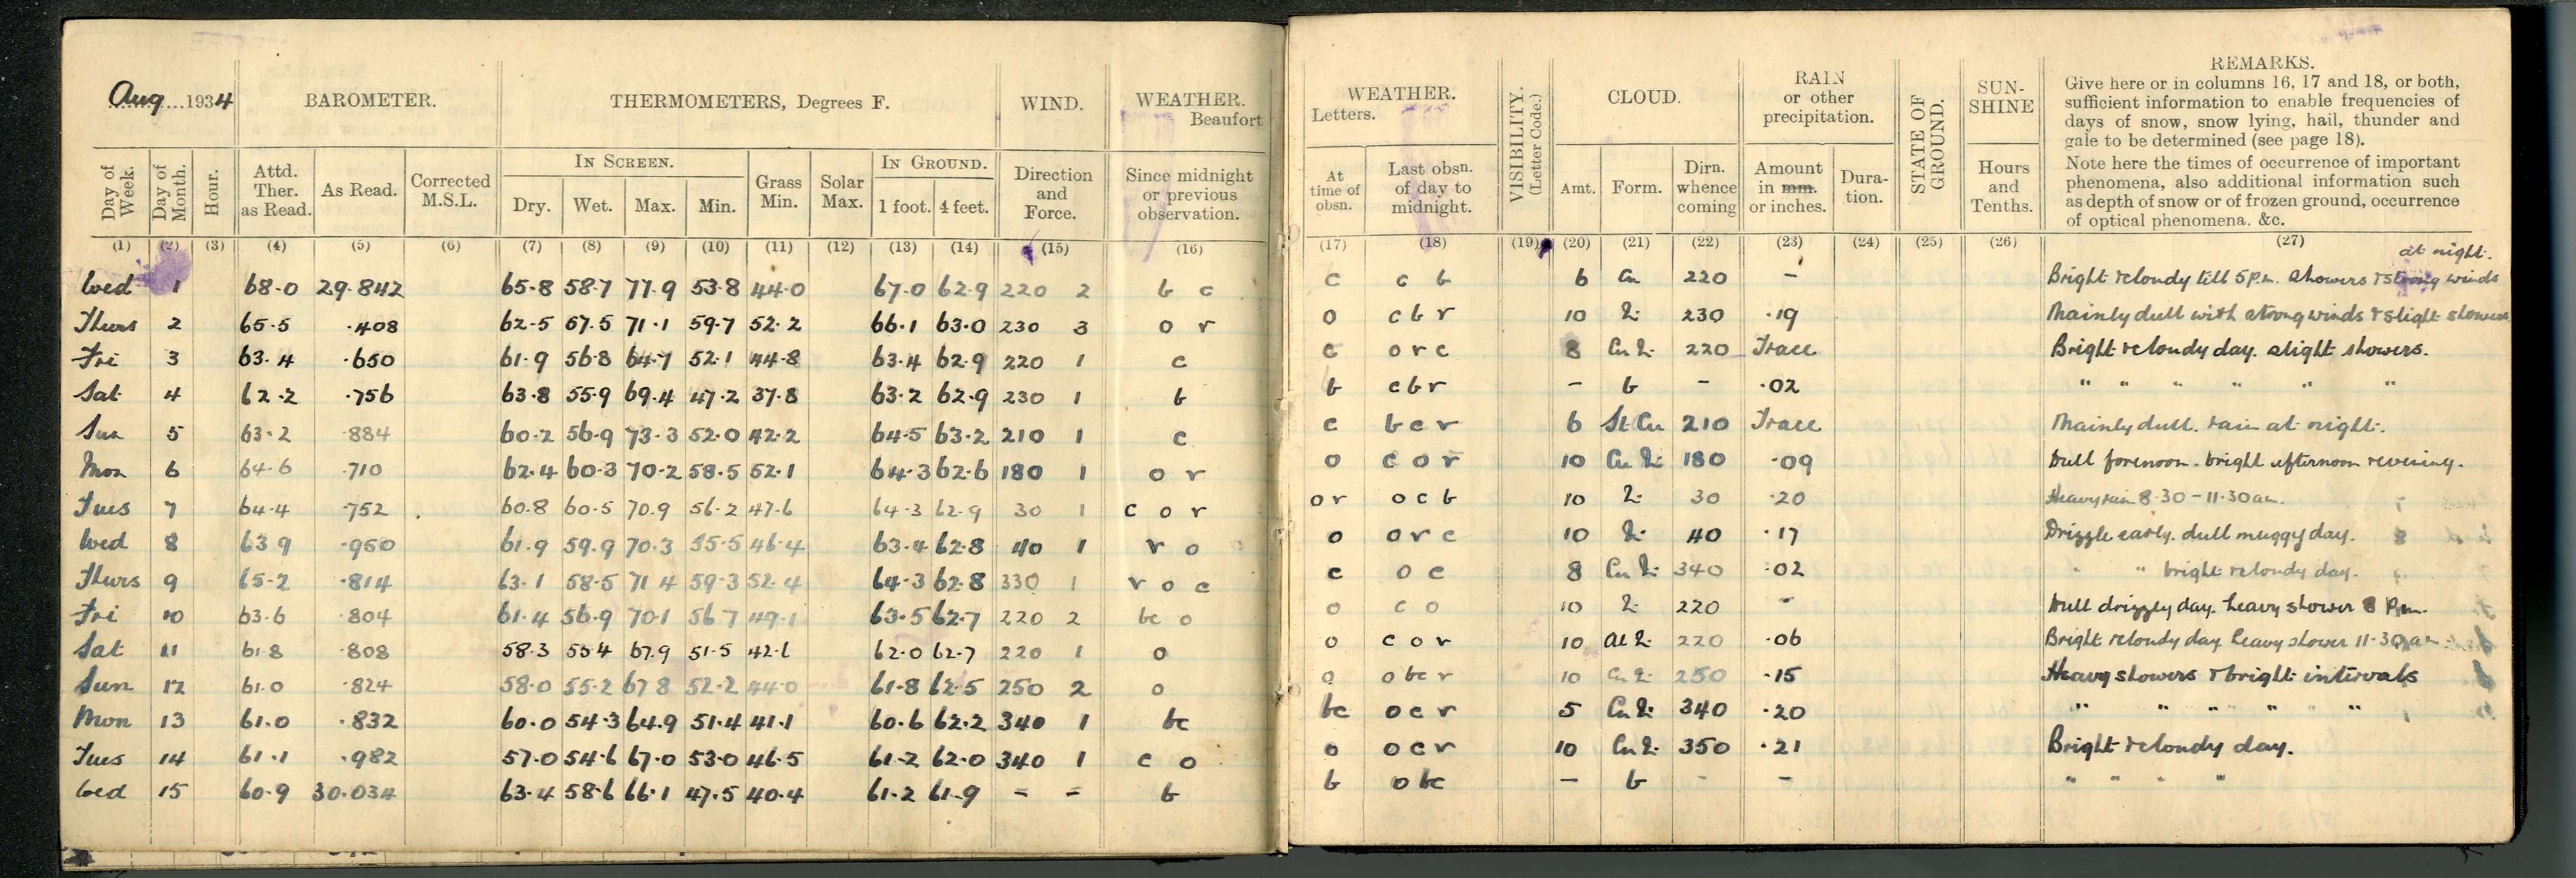 Aug 1934 BAROMETER. THERMOMETERS, Degrees F. WIND. WEATHER. Beaufort
Day of Week. Day of Month. Hour. Attd. Ther. as Read. As Read. Corrected M.S.L. IN SCREEN. Dry. Wet. Max. Min. Grass Min. Solar Max. IN GROUND. 1 foot. 4 feet. Direction and Force. Since midnight or previous observation.
(1) (2) (3) (4) (5) (6) (7) (8) (9) (10) (11) (12) (13) (14) (15) (16)
Wed 1 68.0 29.842 65.8 58.7 77.9 53.8 44.0 67.0 62.9 220 2 b c
Thurs 2 65.5 .408 62.5 57.5 71.1 59.7 52.2 66.1 63.0 230 3 o r
Fri 3 63.4 .650 61.9 56.8 64.7 52.1 44.8 63.4 62.9 220 1 c
Sat 4 62.2 .756 63.8 55.9 69.4 47.2 37.8 63.2 62.9 230 1 b
Sun 5 63.2 .884 60.2 56.9 73.3 52.0 42.2 64.5 63.2 210 1 c
Mon 6 64.6 .710 62.4 60.3 70.2 58.5 52.1 64.3 62.6 180 1 o r
Tues 7 64.4 .752 60.8 60.5 70.9 56.2 47.6 64.3 62.9 30 1 c o r
Wed 8 63.9 .950 61.9 59.9 70.3 55.5 46.4 63.4 62.8 40 1 r o
Thurs 9 65.2 .814 63.1 58.5 71.4 59.3 52.4 64.3 62.8 330 1 r o c
Fri 10 63.6 .804 61.4 56.9 70.1 56.7 49.1 63.5 62.7 220 2 bc o
Sat 11 61.8 .808 58.3 55.4 67.9 51.5 42.1 62.0 62.7 220 1 o
Sun 12 61.0 .824 58.0 55.2 67.8 52.2 44.0 61.8 62.5 250 2 o
Mon 13 61.0 .832 60.0 54.3 64.9 51.4 41.1 60.6 62.2 340 1 bc
Tues 14 61.1 .982 57.0 54.6 67.0 53.0 46.5 61.2 62.0 340 1 c o
Wed 15 60.9 30.034 63.4 58.6 66.1 47.5 40.4 61.2 61.9 - - b
WEATHER. Letters. VISIBILITY. (Letter Code.) CLOUD. RAIN or other precipitation. STATE OF GROUND. SUN-SHINE REMARKS.
Give here or in columns 16, 17 and 18, or both,
sufficient information to enable frequencies of
days of snow, snow lying, hail, thunder and
gale to be determined (see page 18).
Note here the times of occurrence of important
phenomena, also additional information such
as depth of snow or of frozen ground, occurrence
of optical phenomena. &c.
At time of obsn. Last obsn. of day to midnight. Amt. Form. Dirn. whence coming Amount in mm. or inches. Dura-tion. Hours and Tenths.
(17) (18) (19) (20) (21) (22) (23) (24) (25) (26) (27)
at night.
c c b 6 Cu 220 - Bright & cloudy till 5 P.m. Showers & strong winds
o c b r 10 230 .19 Mainly dull with strong winds & slight showers
c o r c 8 Cu 220 Trace Bright & cloudy day. slight showers.
b c b r - b - .02 " " " " " "
c b c r 6 St Cu 210 Trace Mainly dull. rain at night.
o c o r 10 Cu 180 .09 Dull forenoon. bright afternoon & evening.
or o c b 10 30 .20 Heavy rain 8.30 - 11.30 am.
o o r c 10 40 .17 Drizzle early. dull muggy day.
c o c 8 Cu 340 .02 " " bright & cloudy day.
o c o 10 220 - Dull drizzly day. heavy shower 8 P.m.
o c o r 10 220 .06 Bright & cloudy day. heavy shower 11.30 am
o o bc r 10 Cu 250 .15 Heavy showers & bright intervals
bc o c r 5 Cu 340 .20 " " " " " "
o o c r 10 Cu 350 .21 Bright & cloudy day.
b o bc - b - - " " " "